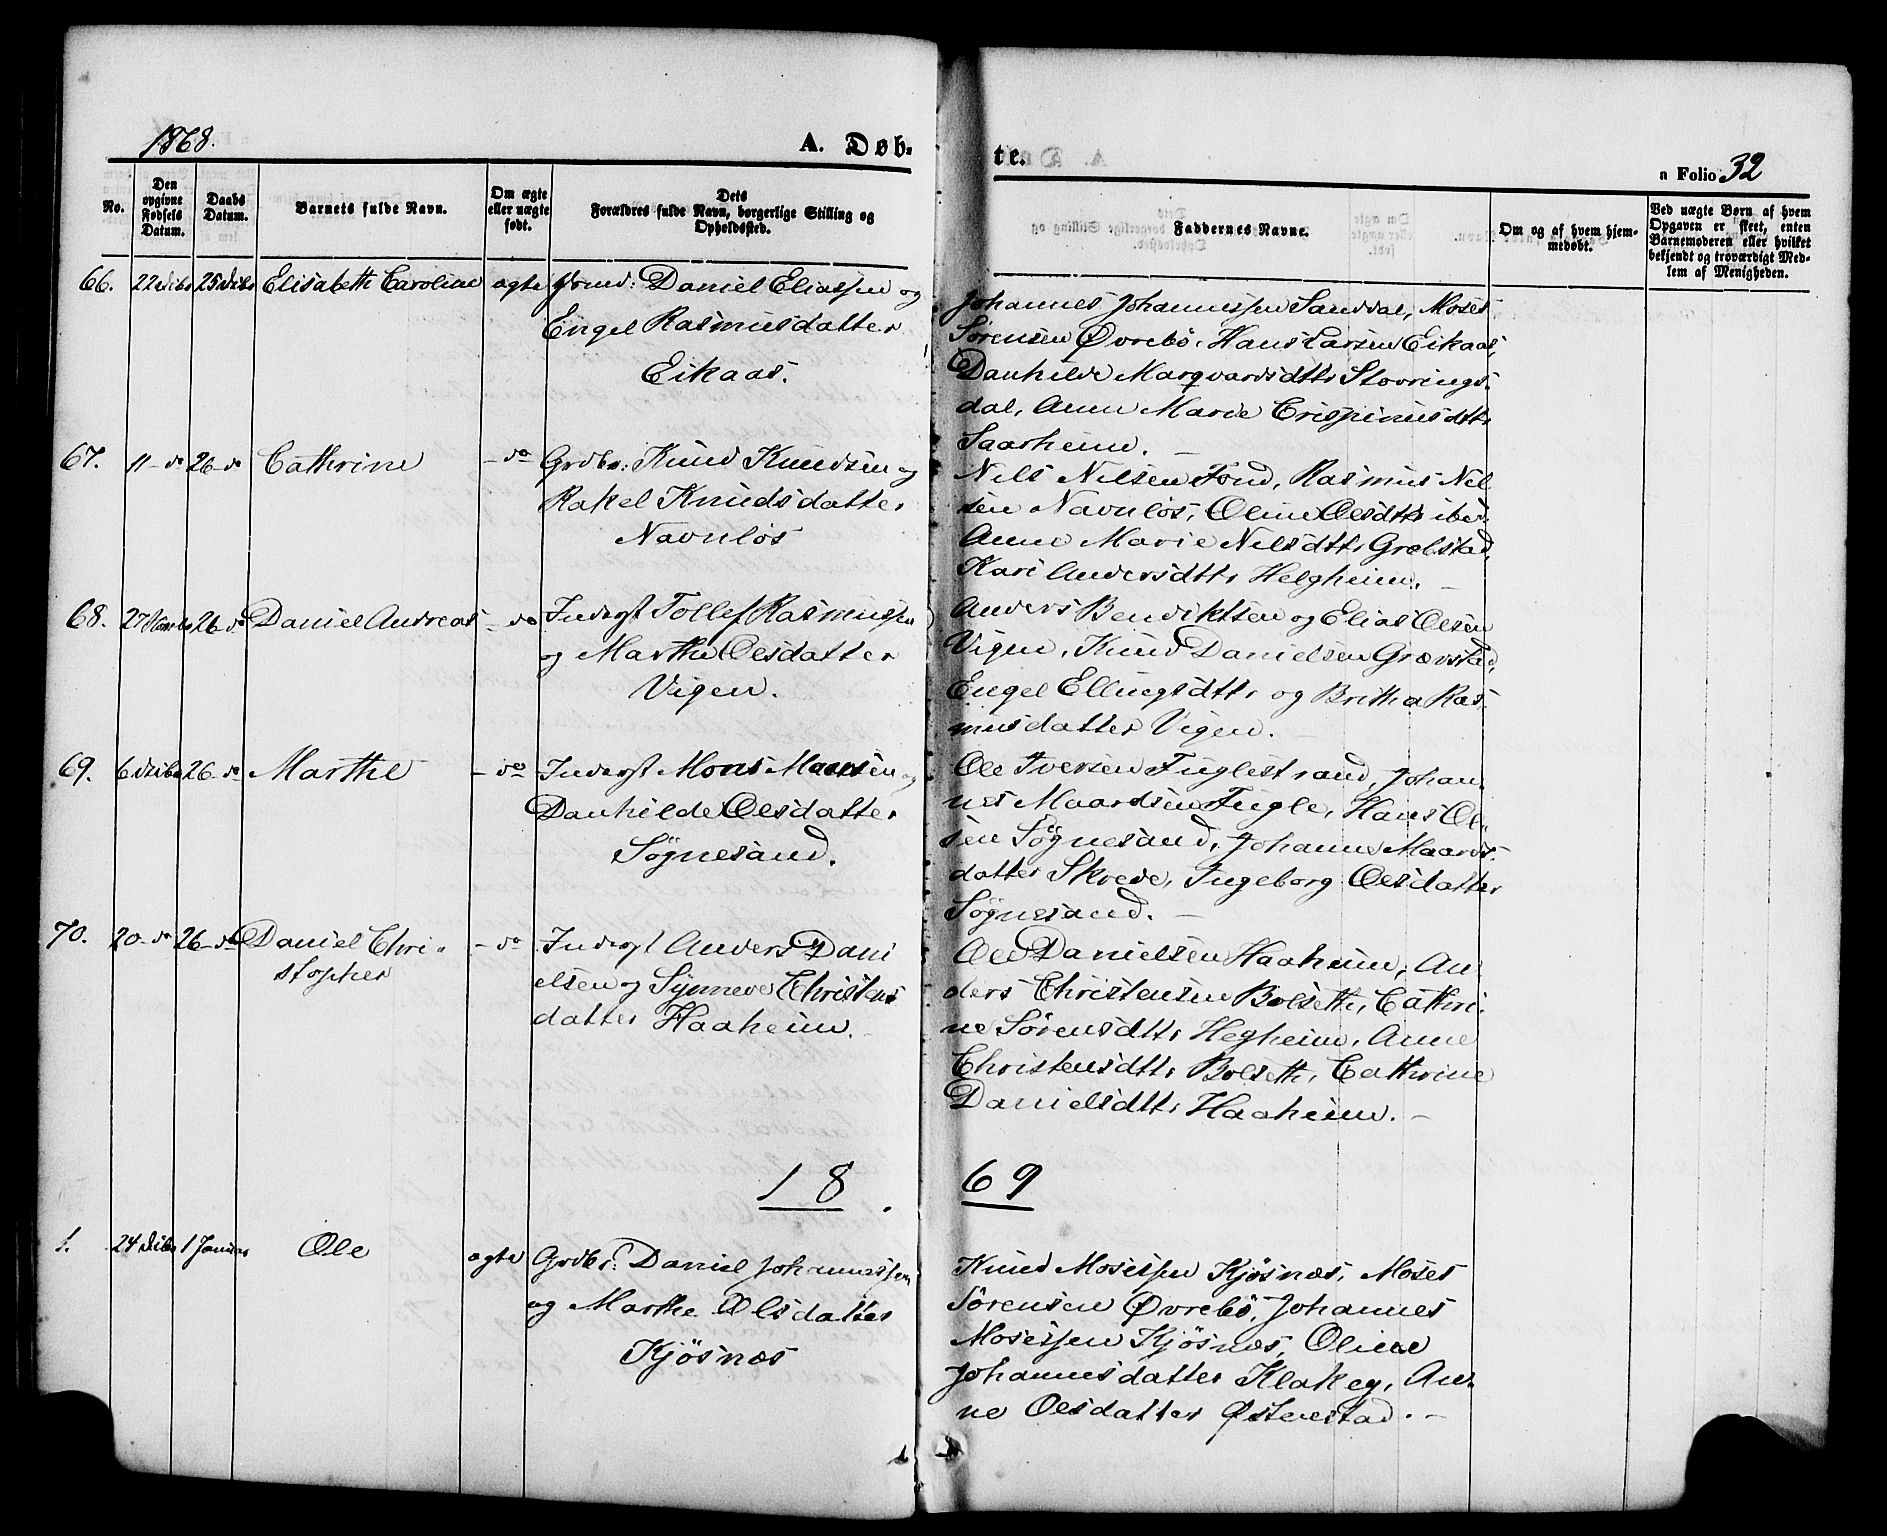 1868.
A. Døb-
te.
n Folio 32
No.
Den opgivne Fødsels Datum.
Daabs Datum.
Barnets fulde Navn.
Om ægte eller uægte født.
Dets Forældres fulde Navn, borgerlige Stilling og Opholdssted.
Faddernes Navne.
Om og af hvem hjemmedøbt.
Ved uægte Børn af hvem Opgaven er skeet, enten Barnemoderen eller hvilket bekjendt og troværdigt Medlem af Menigheden.
66. 22 Debr 25 Debr Elisabeth Caroline ægte Daniel Eliassen og
Engel Rasmusdatter
Eikaas.
Johannes Johannessen Sanddal, Moses
Sørensen Øvrebö, Hans Larsen Eikaas,
Danhilde Marqvardsdttr Stovrings-
dal, Anne Marie Crispinusdttr
Saarheim. —
67. 11 – do 26 – do Cathrine – do Grdbr: Knud Knudsen og
Rakel Knudsdatter
Navnløs
Nils Nilsen Fond, Rasmus Nil-
sen Navnløs, Oline Olsdttr ibid.
Anne Marie Nilsdttr Grebstad,
Kari Andersdttr Helgheim. —
68. 27 Novbr 26 – do Daniel Andreas – do Inderst Tollef Rasmussen
og Marthe Olsdatter
Vigen.
Anders Bendiktsen og Elias Olsen
Vigen, Knud Danielsen Grævstad,
Engel Ellingsdttr og Britha Ras-
musdatter Vigen. —
69. 6 Debr 26 – do Marthe – do Inderst Mons Monsen og
Danhilde Olsdatter
Søgnesand.
Ole Iversen Fuglestrand, Johan-
nes Maardsen Fugle, Hans Ol-
sen Søgnesand, Johanne Maards-
datter Skrede, Ingeborg Olsdatter
Søgnesand. —
70. 20 – do 26 – do Daniel Chri-
stopher
– do Inderst Anders Dani
elsen og Synneve Christens
datter Haaheim. —
Ole Danielsen Haaheim, An-
ders Christensen Bolseth, Cathri-
ne Sørensdttr Hegheim, Anne
Christensdttr Bolseth, Cathrine
Danielsdttr Haaheim. —
18 69
1. 24 Debr 1 Januar Ole ægte Grdbr: Daniel Johannessen
og Marthe Olsdatter
Kjøsnæs
Knud Mosessen Kjøsnæs, Moses
Sørensen Øvrebö, Johannes
Mosessen Kjøsnæs, Oline
Johannesdatter Klakeg, An-
ne Olsdatter Østenstad. —